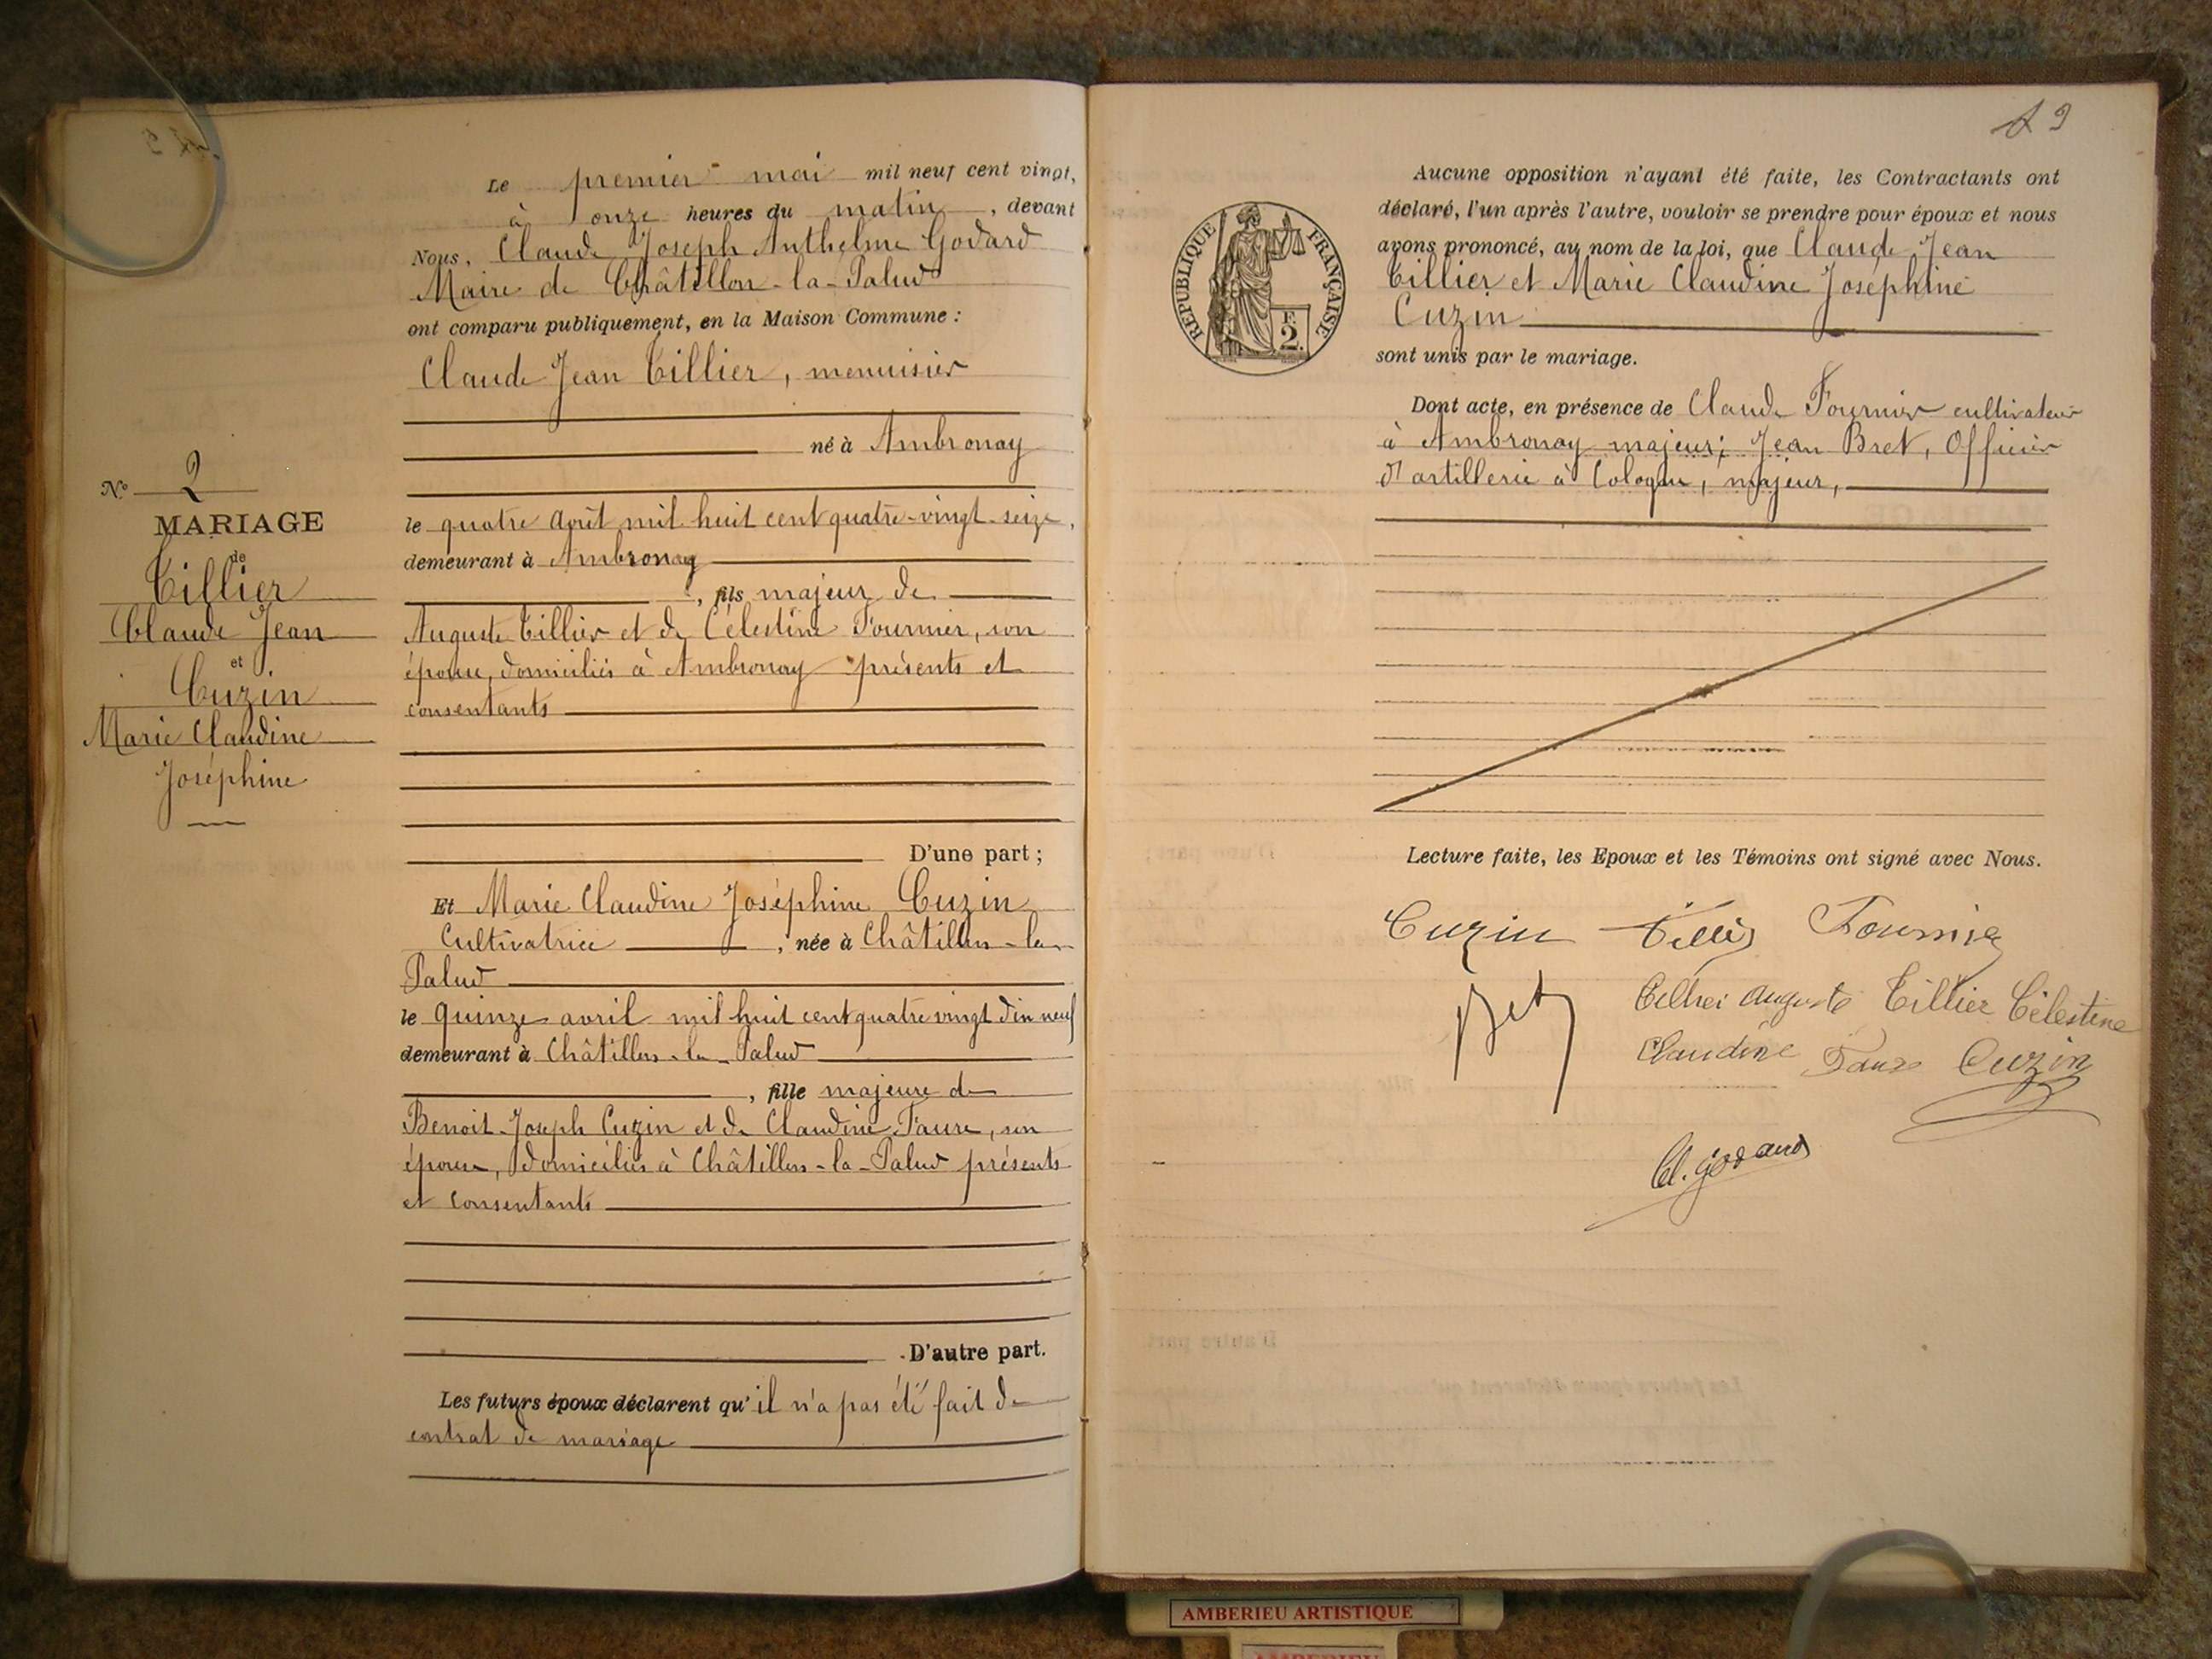 Le premier mai mil neuf cent vingt,
à onze heures du matin, devant
Nous, Claude Joseph Anthelme Godard
Maire de Châtillon-la-Palud
ont comparu publiquement, en la Maison Commune :
Claude Jean Tillier, menuisier
né à Ambronay
le quatre août mil huit cent quatre-vingt-seize,
demeurant à Ambronay
, fils majeur de
Auguste Tillier et de Célestine Fournier, son
épouse, domiciliés à Ambronay présents et
consentants
D'une part ;
Et Marie Claudine Joséphine Cuzin
Cultivatrice, née à Châtillon-la-
Palud
le quinze avril mil huit cent quatre vingt dix neuf
demeurant à Châtillon-la-Palud
, fille majeure de
Benoit Joseph Cuzin et de Claudine Faure, son
épouse, domiciliés à Châtillon-la-Palud présents
et consentants
D'autre part.
Les futurs époux déclarent qu'il n'a pas été fait de
contrat de mariage
N° 2
MARIAGE
de
Tillier
Claude Jean
et
Cuzin
Marie Claudine
Joséphine
19
RÉPUBLIQUE FRANÇAISE
F.
2.
Aucune opposition n'ayant été faite, les Contractants ont
déclaré, l'un après l'autre, vouloir se prendre pour époux et nous
avons prononcé, au nom de la loi, que Claude Jean
Tillier et Marie Claudine Joséphine
Cuzin
sont unis par le mariage.
Dont acte, en présence de Claude Fournier cultivateur
à Ambronay majeur; Jean Bret, Officier
d'artillerie à Cologne, majeur,
Lecture faite, les Epoux et les Témoins ont signé avec Nous.
Cuzin Tillier Fournier
Bret Tillier Auguste Tillier Célestine
Claudine Faure Cuzin
Cl. Godard
AMBERIEU ARTISTIQUE
AMBERIEU